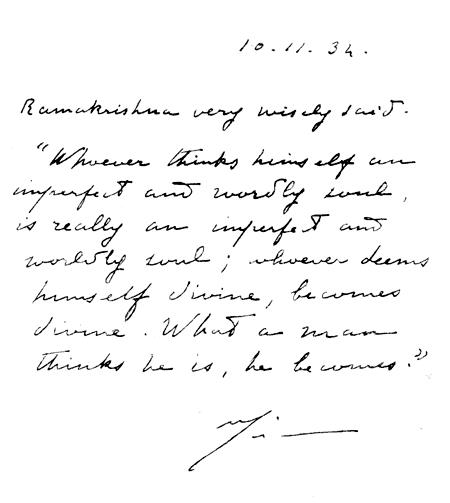 10.11.34.
Ramakrishna very wisely said.
"Whoever thinks himself an
imperfect and wordly soul,
is really an imperfect and
worldly soul; whoever deems
himself divine, becomes
divine. What a man
thinks he is, he becomes."